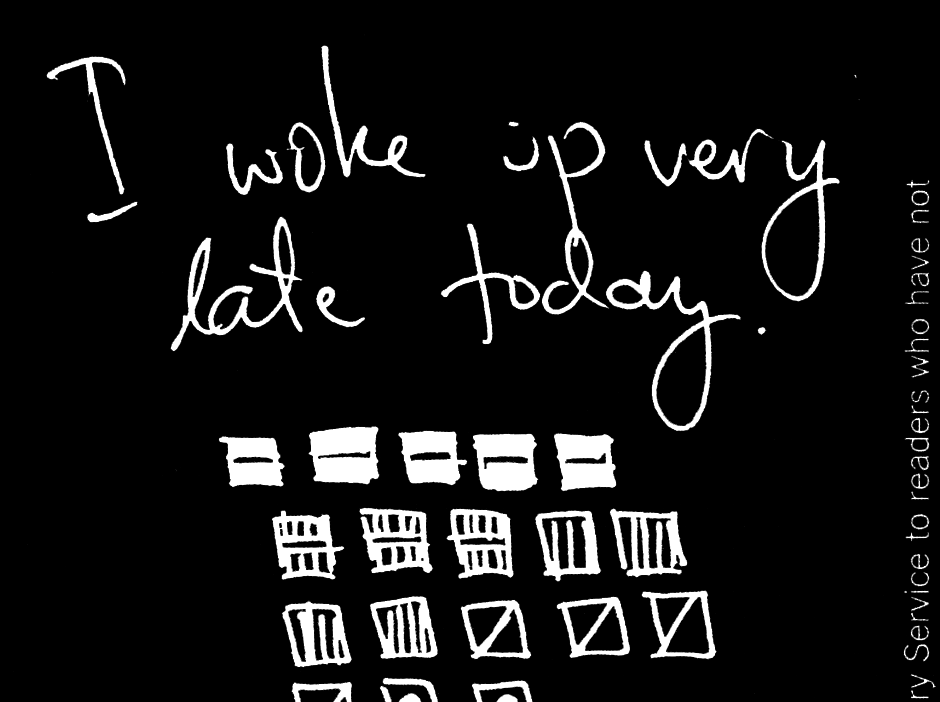 I woke up very
late today.
ry Service to readers who have not